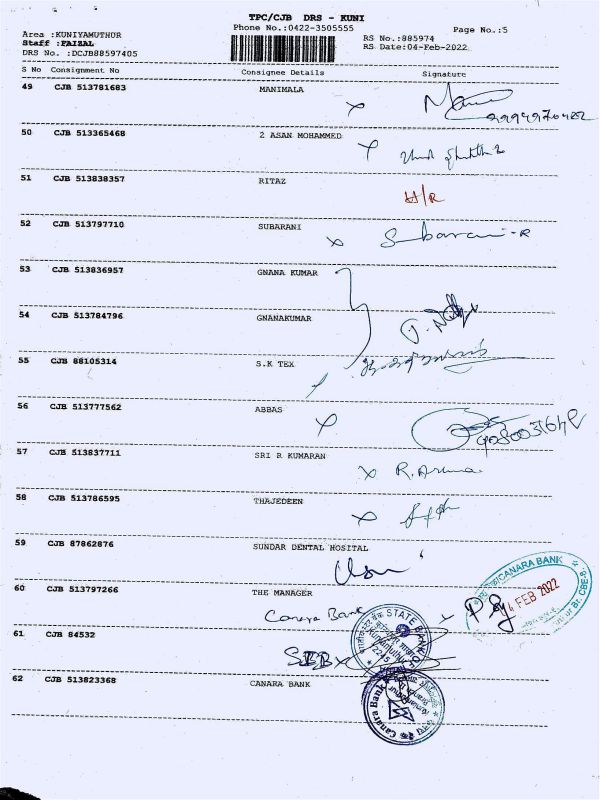 TPC/CJB DRS - KUNI
Phone No.:0422-3505555
Page No.:5
Area :KUNIYAMUTHUR
Staff :FAIZAL
DRS No. :DCJB88597405
RS No.:885974
RS Date:04-Feb-2022
S No Consignment No Consignee Details Signature
49 CJB 513781683 MANIMALA
50 CJB 513365468 2 ASAN MOHAMMED
51 CJB 513838357 RITAZ
H/R
52 CJB 513797710 SUBARANI
Subarani-R
53 CJB 513836957 GNANA KUMAR
54 CJB 513784796 GNANAKUMAR
55 CJB 88105314 S.K TEX
56 CJB 513777562 ABBAS
57 CJB 513837711 SRI R KUMARAN
R. Aruna
58 CJB 513786595 THAJEDEEN
59 CJB 87862876 SUNDAR DENTAL HOSITAL
60 CJB 513797266 THE MANAGER
Canara Bank
CANARA BANK
4 FEB 2022
61 CJB 84532
SBI
STATE BANK
62 CJB 513823368 CANARA BANK
Canara Bank